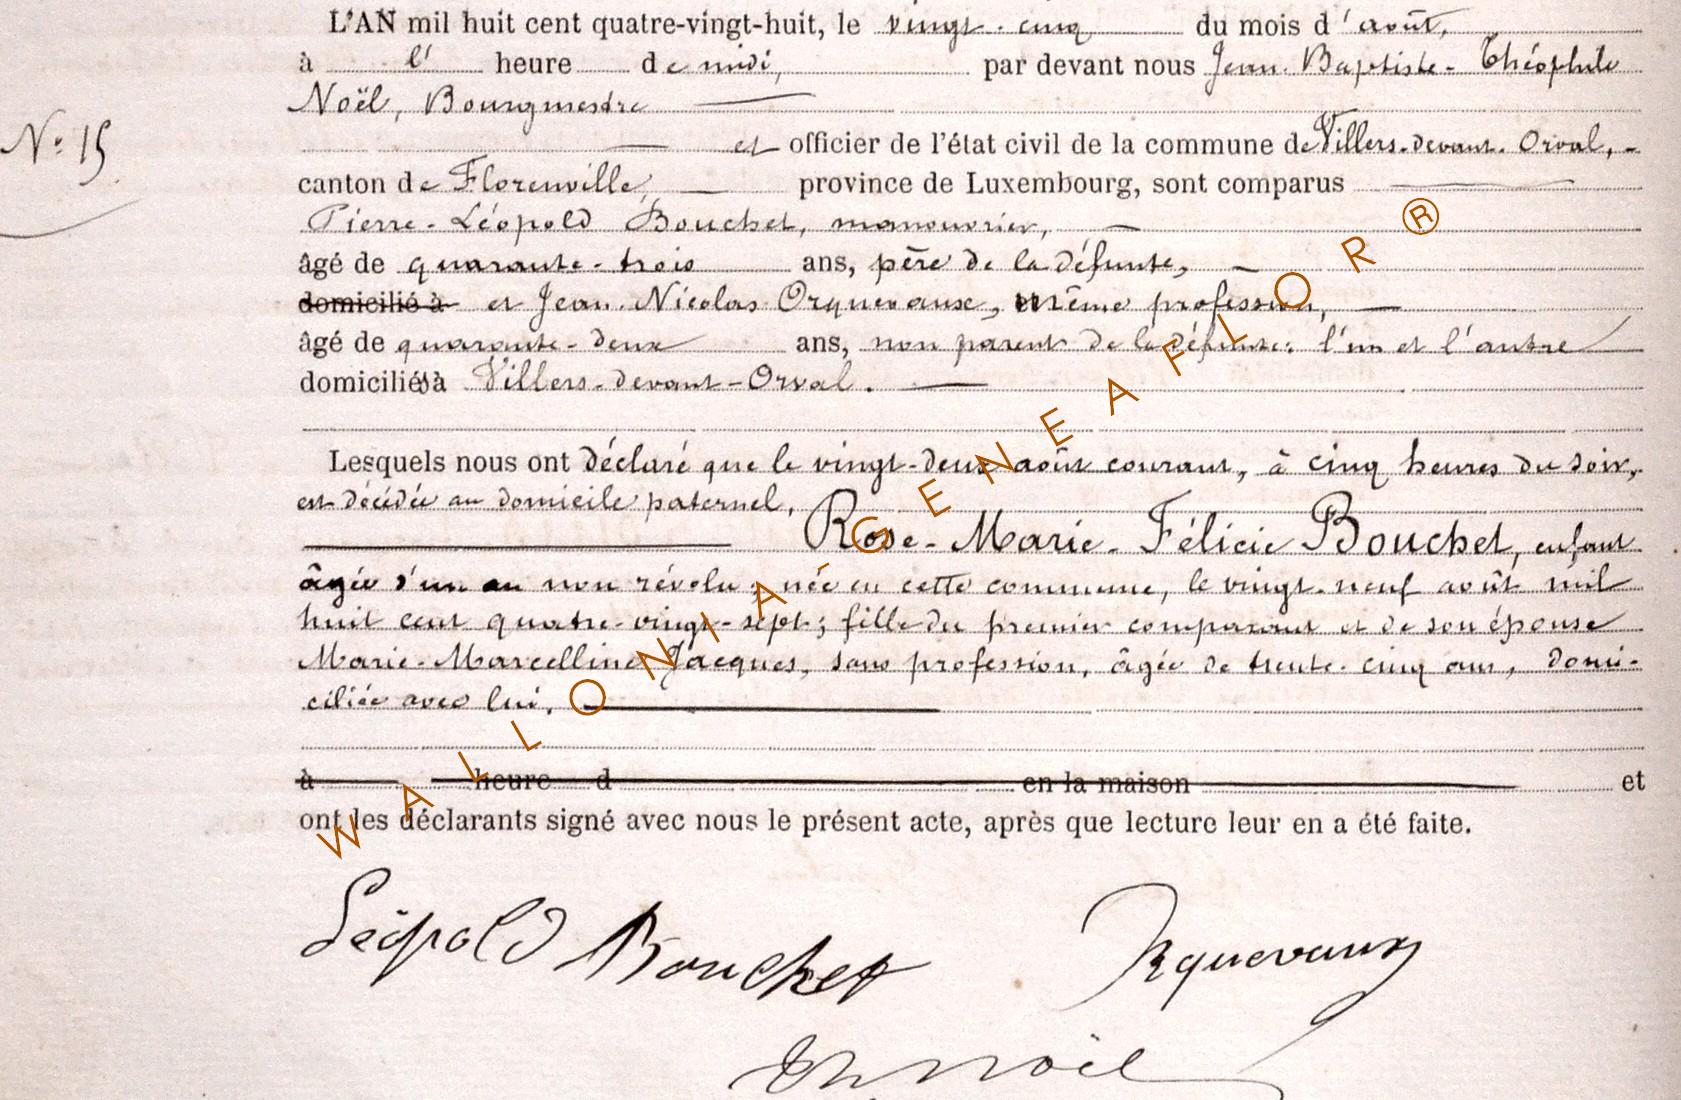 L'AN mil huit cent quatre-vingt-huit, le vingt-cinq du mois d'août,
à l' heure de midi, par devant nous Jean-Baptiste-Théophile
Noël, Bourgmestre
N° 15
et officier de l'état civil de la commune de Villers-devant-Orval,
canton de Florenville, province de Luxembourg, sont comparus
Pierre-Léopold Bouchet, manouvrier,
âgé de quarante-trois ans, père de la défunte,
domicilié à et Jean-Nicolas Orquevaux, même profession,
âgé de quarante-deux ans, non parent de la défunte; l'un et l'autre
domiciliés à Villers-devant-Orval.
Lesquels nous ont déclaré que le vingt-deux août courant, à cinq heures du soir,
est décédée au domicile paternel,
Rose-Marie-Félicie Bouchet, enfant
âgée d'un an non révolu; née en cette commune, le vingt-neuf août mil
huit cent quatre-vingt-sept; fille du premier comparant et de son épouse
Marie-Marcelline Jacques, sans profession, âgée de trente-cinq ans, domi-
ciliée avec lui.
à heure d en la maison et
ont les déclarants signé avec nous le présent acte, après que lecture leur en a été faite.
Léopold Bouchet Orquevaux
Th Noël
WALLONIA GENEAFLOR ®